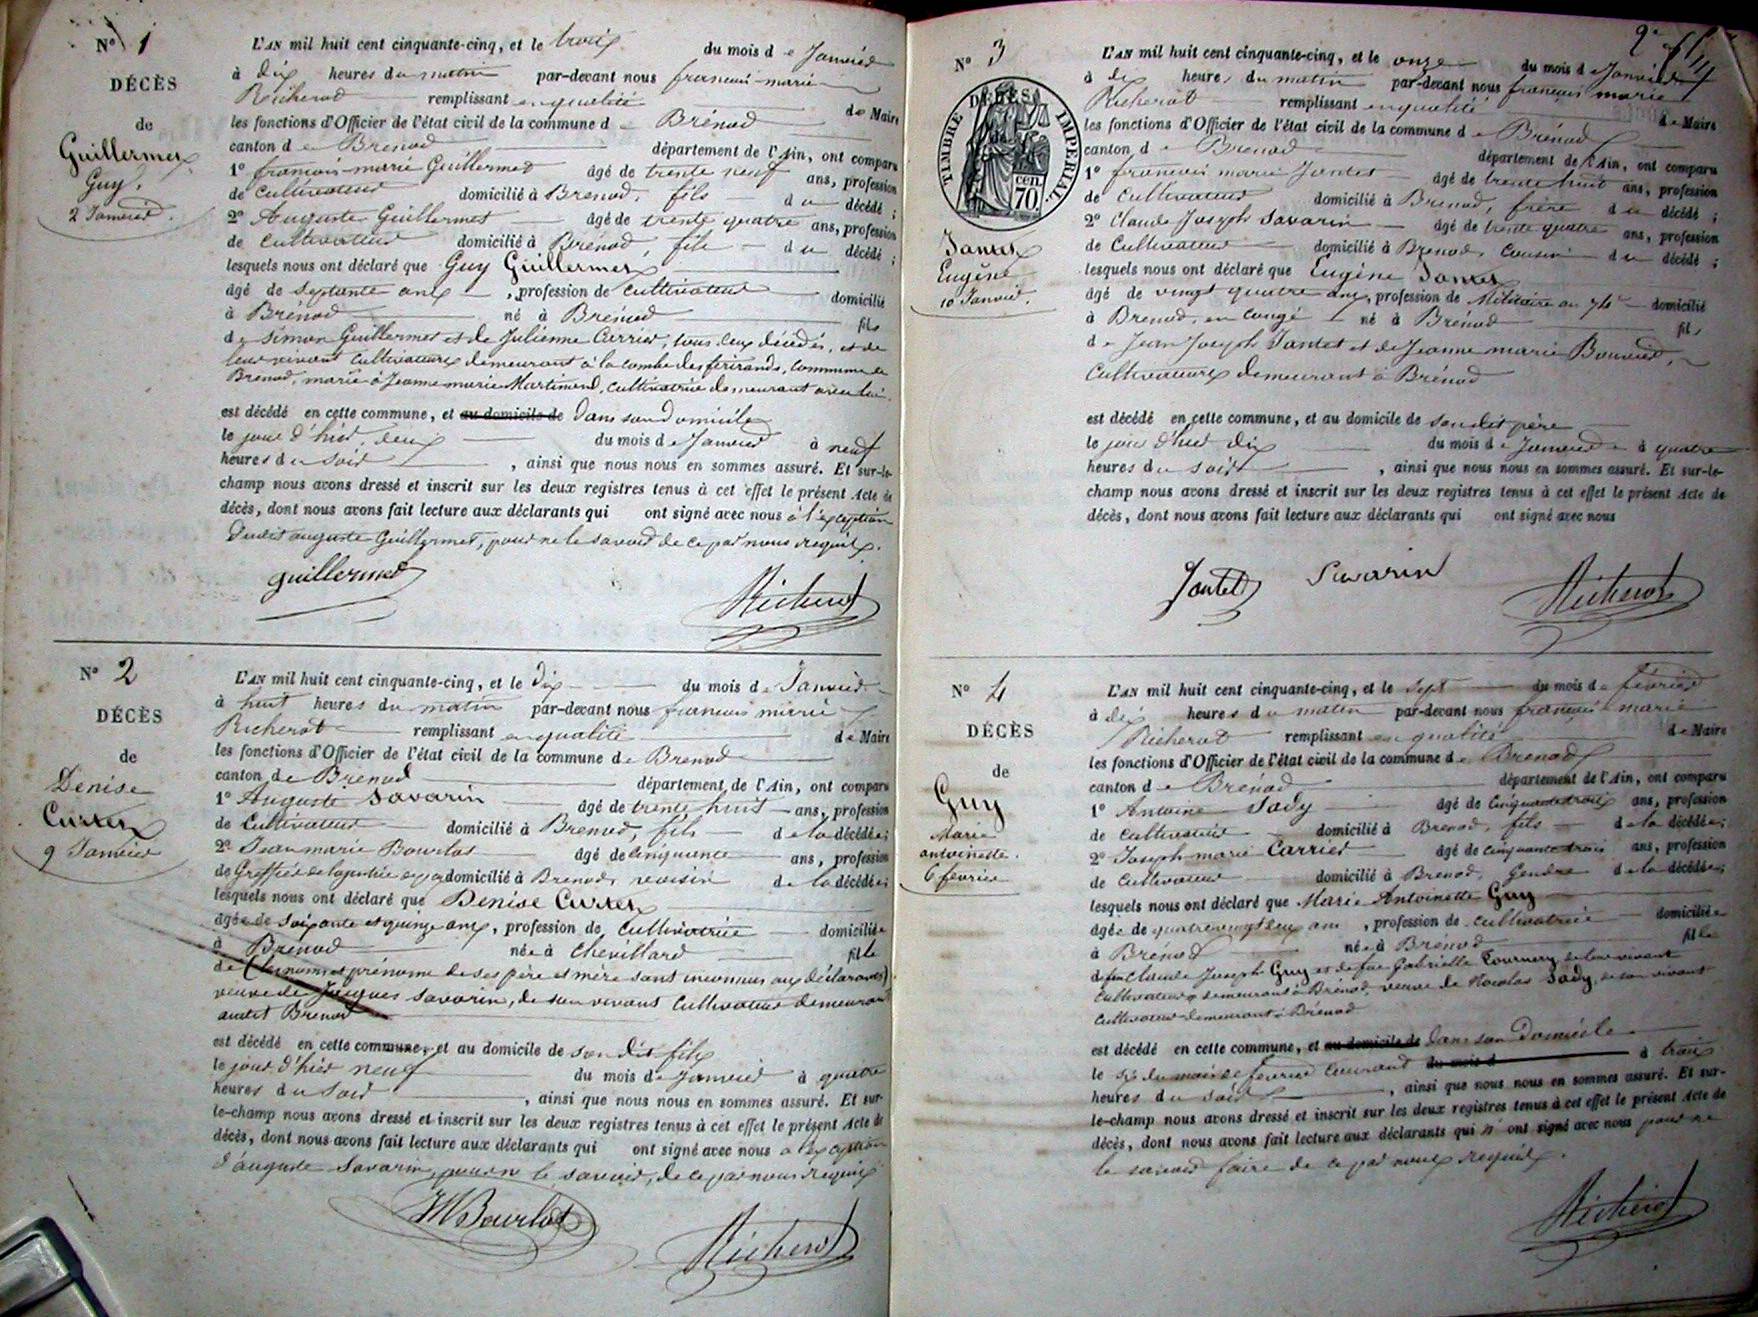 N° 1
DÉCÈS
de
Guillermet
Guy.
2 Janvier.
L'AN mil huit cent cinquante-cinq, et le trois du mois de Janvier
à dix heures du matin par-devant nous françois marie
Richerot remplissant en qualité de Maire
les fonctions d'Officier de l'état civil de la commune de Brénod
canton de Brénod département de l'Ain, ont comparu
1° françois-marie Guillermet âgé de trente neuf ans, profession
de Cultivateur domicilié à Brénod, fils du décédé ;
2° Auguste Guillermet âgé de trente quatre ans, profession
de Cultivateur domicilié à Brénod, fils du décédé ;
lesquels nous ont déclaré que Guy Guillermet
âgé de septante ans, profession de Cultivateur domicilié
à Brénod né à Brénod fils
de Simon Guillermet et de Julienne Carrier, tous deux décédés, et de
leur vivant Cultivateurs demeurant à la combe des ferrands, commune de
Brénod, marié à Jeanne-marie Martinand, cultivatrice demeurant avec lui.
est décédé en cette commune, et au domicile de dans son domicile
le jour d'hier, deux du mois de Janvier à neuf
heures du soir, ainsi que nous nous en sommes assuré. Et sur-le-
champ nous avons dressé et inscrit sur les deux registres tenus à cet effet le présent Acte de
décès, dont nous avons fait lecture aux déclarants qui ont signé avec nous à l'exception
dudit auguste Guillermet, pour ne le savoir de ce par nous requis.
guillermet
Richerot
N° 2
DÉCÈS
de
Denise
Curtet
9 Janvier
L'AN mil huit cent cinquante-cinq, et le dix du mois de Janvier
à huit heures du matin par-devant nous françois marie
Richerot remplissant en qualité de Maire
les fonctions d'Officier de l'état civil de la commune de Brenod
canton de Brenod département de l'Ain, ont comparu
1° Auguste Savarin âgé de trente huit ans, profession
de Cultivateur domicilié à Brenod, fils de la décédée;
2° Jean marie Bourlot âgé de cinquante ans, profession
de Greffier de la justice de paix domicilié à Brenod, voisin de la décédée;
lesquels nous ont déclaré que Denise Curtet
âgée de soixante et quinze ans, profession de Cultivatrice domiciliée
à Brénod née à Chevillard fille
de (les noms et prénoms de ses père et mère sont inconnus aux déclarants)
veuve de Jacques Savarin, de son vivant Cultivateur demeurant
audit Brénod
est décédé en cette commune, et au domicile de son dit fils
le jour d'hier neuf du mois de Janvier à quatre
heures du Soir, ainsi que nous nous en sommes assuré. Et sur-
le-champ nous avons dressé et inscrit sur les deux registres tenus à cet effet le présent Acte de
décès, dont nous avons fait lecture aux déclarants qui ont signé avec nous à l'exception
d'auguste Savarin, pour ne le savoir, de ce par nous requis
JMBourlot
Richerot
N° 3
TIMBRE IMPÉRIAL.
DÉCÈS
cen.
70.
Jantet
Eugène
10 Janvier.
L'AN mil huit cent cinquante-cinq, et le onze du mois de Janvier
à dix heures du matin par-devant nous françois marie
Richerot remplissant en qualité de Maire
les fonctions d'Officier de l'état civil de la commune de Brénod
canton de Brenod département de l'Ain, ont comparu
1° francois marie Jantet âgé de trente huit ans, profession
de Cultivateur domicilié à Brenod, frère du décédé ;
2° Claude Joseph Savarin âgé de trente quatre ans, profession
de Cultivateur domicilié à Brenod, Cousin du décédé ;
lesquels nous ont déclaré que Eugène Jantet
âgé de vingt quatre ans, profession de Militaire au 74e domicilié
à Brenod, en congé né à Brénod fils
de Jean Joseph Jantet et de Jeanne marie Bouvier,
Cultivateurs demeurant à Brénod
est décédé en cette commune, et au domicile de son dit père
le jour d'hier dix du mois de Janvier à quatre
heures du soir, ainsi que nous nous en sommes assuré. Et sur-le-
champ nous avons dressé et inscrit sur les deux registres tenus à cet effet le présent Acte de
décès, dont nous avons fait lecture aux déclarants qui ont signé avec nous
Jantet Savarin
Richerot
N° 4
DÉCÈS
de
Guy
Marie
antoinette.
6 février
L'AN mil huit cent cinquante-cinq, et le Sept du mois de février
à dix heures du matin par-devant nous françois marie
Richerot remplissant en qualité de Maire
les fonctions d'Officier de l'état civil de la commune de Brenod
canton de Brénod département de l'Ain, ont comparu
1° Antoine Sady âgé de cinquante trois ans, profession
de cultivateur domicilié à Brenod, fils de la décédée;
2° Joseph marie Carrier âgé de cinquante trois ans, profession
de Cultivateur domicilié à Brenod, Gendre de la décédée;
lesquels nous ont déclaré que Marie Antoinette Guy
âgée de quatrevingt deux ans, profession de cultivatrice domiciliée
à Brénod née à Brénod fille
de feu Claude Joseph Guy et de feue Gabrielle Tournery, de leur vivant
Cultivateurs demeurant à Brénod, veuve de Nicolas Sady, de son vivant
Cultivateur demeurant à Brénod
est décédé en cette commune, et au domicile de dans son domicile
le six du mois de février Courant du mois d à trois
heures du soir, ainsi que nous nous en sommes assuré. Et sur-
le-champ nous avons dressé et inscrit sur les deux registres tenus à cet effet le présent Acte de
décès, dont nous avons fait lecture aux déclarants qui n'ont signé avec nous pour ne
le savoir faire de ce par nous requis.
Richerot